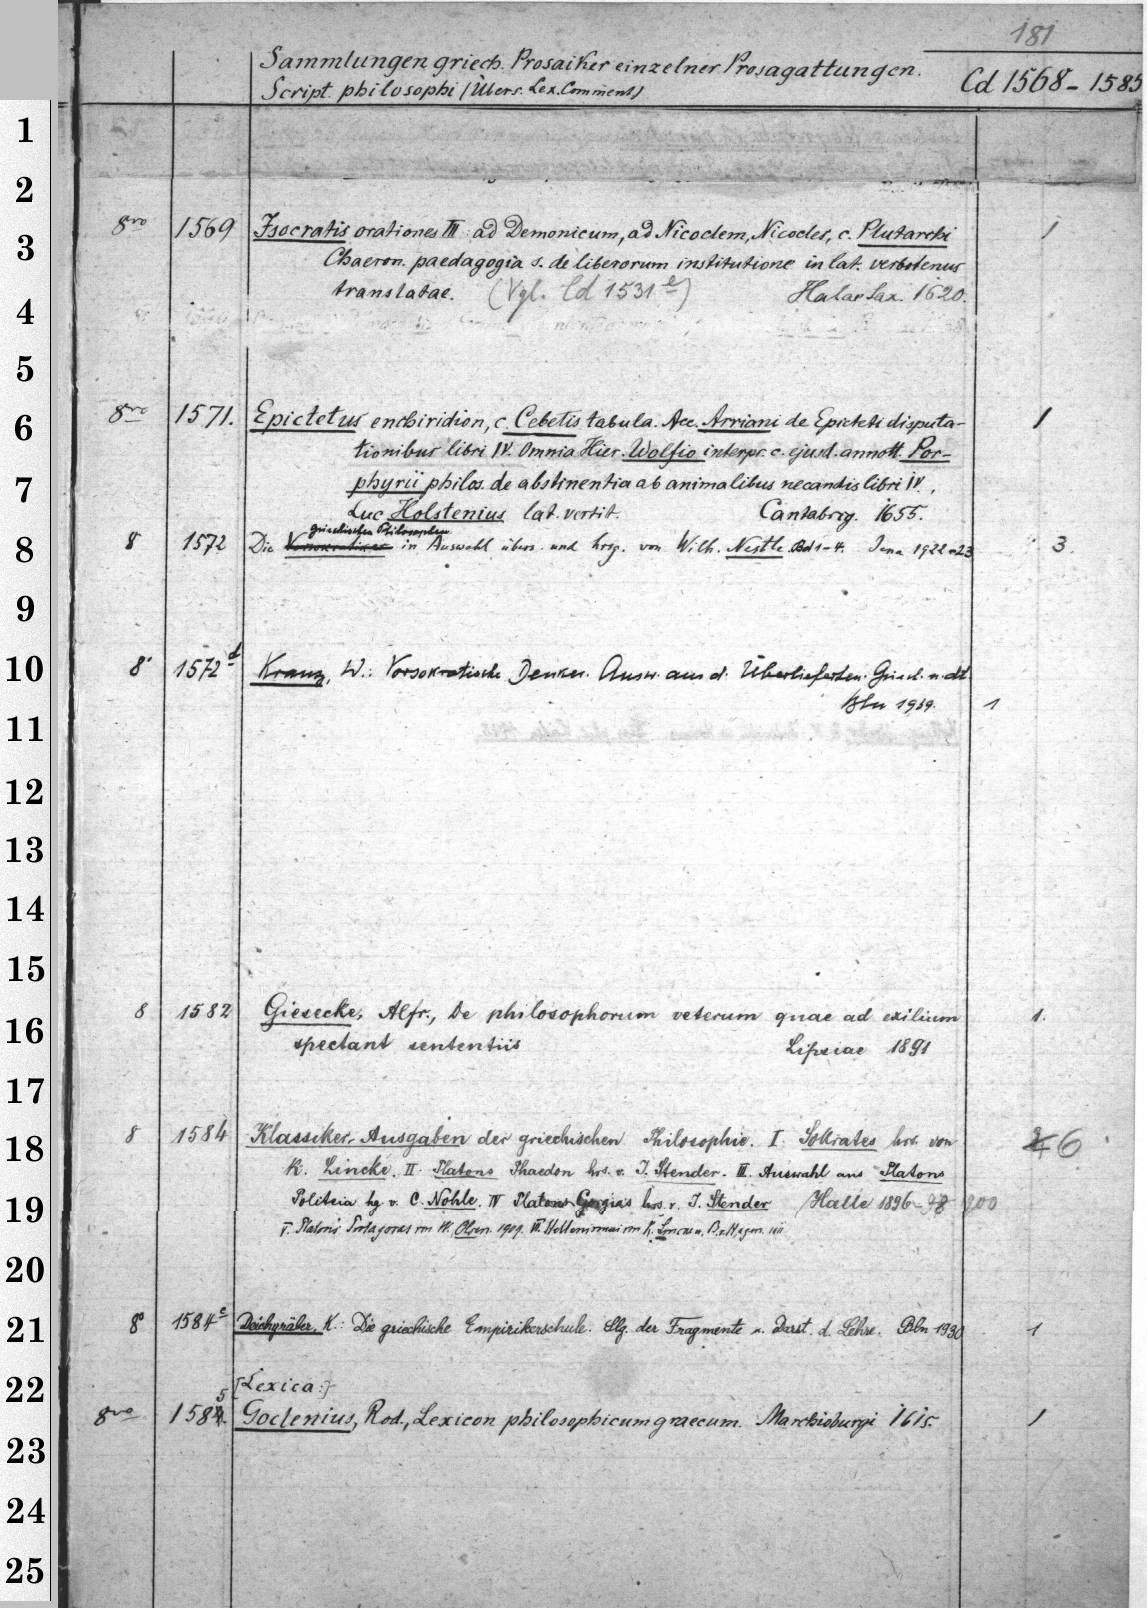 181
Sammlungen griech. Prosaiker einzelner Prosagattungen.
Script. philosophi (Übers. Lex. Comment) Cd 1568-1585
1
2
8vo 1569 Isocratis orationes III ad Demonicum, ad Nicoclem, Nicocles, c. Plutarchi 1
3
Chaeron. paedagogia s. de liberorum institutione in lat. verbotenus
translatae. (Vgl. Cd 1531 e) Halae Sax. 1620.
4
5
8vo 1571. Epictetus enchiridion, c. Cebetis tabula. Acc. Arriani de Epicteti disputa- 1
6
tionibus libri IV. Omnia Hier. Wolfio interpr. c. ejusd. annott. Por-
7
phyrii philos. de abstinentia ab animalibus necandis libri IV.
Luc Holstenius lat. vertit. Cantabrig. 1655.
griechischen Philosophen
8
8 1572 Die Vorsokratiker in Auswahl übers. und hrsg. von Wilh. Nestle Bd 1-4. Jena 1922-23 3.
9
10
8° 1572 d Kranz, W.: Vorsokratische Denker. Ausw. aus d. Überlieferten. Griech. u. dt.
Bln 1939. 1
11
12
13
14
15
8 1582 Giesecke, Alfr., De philosophorum veterum quae ad exilium 1.
16
spectant sententiis Lipsiae 1891
17
8 1584 Klassiker-Ausgaben der griechischen Philosophie. I Sokrates hrs. von 6
18
K. Lincke. II. Platons Phaedon hrs. v. J. Stender. III. Auswahl aus Platons
19
Politeia hg v. C. Nohle. IV Platons Gorgias hrs. v. J. Stender Halle 1896-98 900
V. Platons Protagoras von W. Olsen. 1909. VI.
20
21
8° 1584 e Deichgräber, K.: Die griechische Empirikerschule. Slg. der Fragmente u. Darst. d. Lehre. Bln 1930 1
22
[Lexica:]
8vo 1585 Goclenius, Rod., Lexicon philosophicum graecum. Marchioburgi 1615. 1
23
24
25